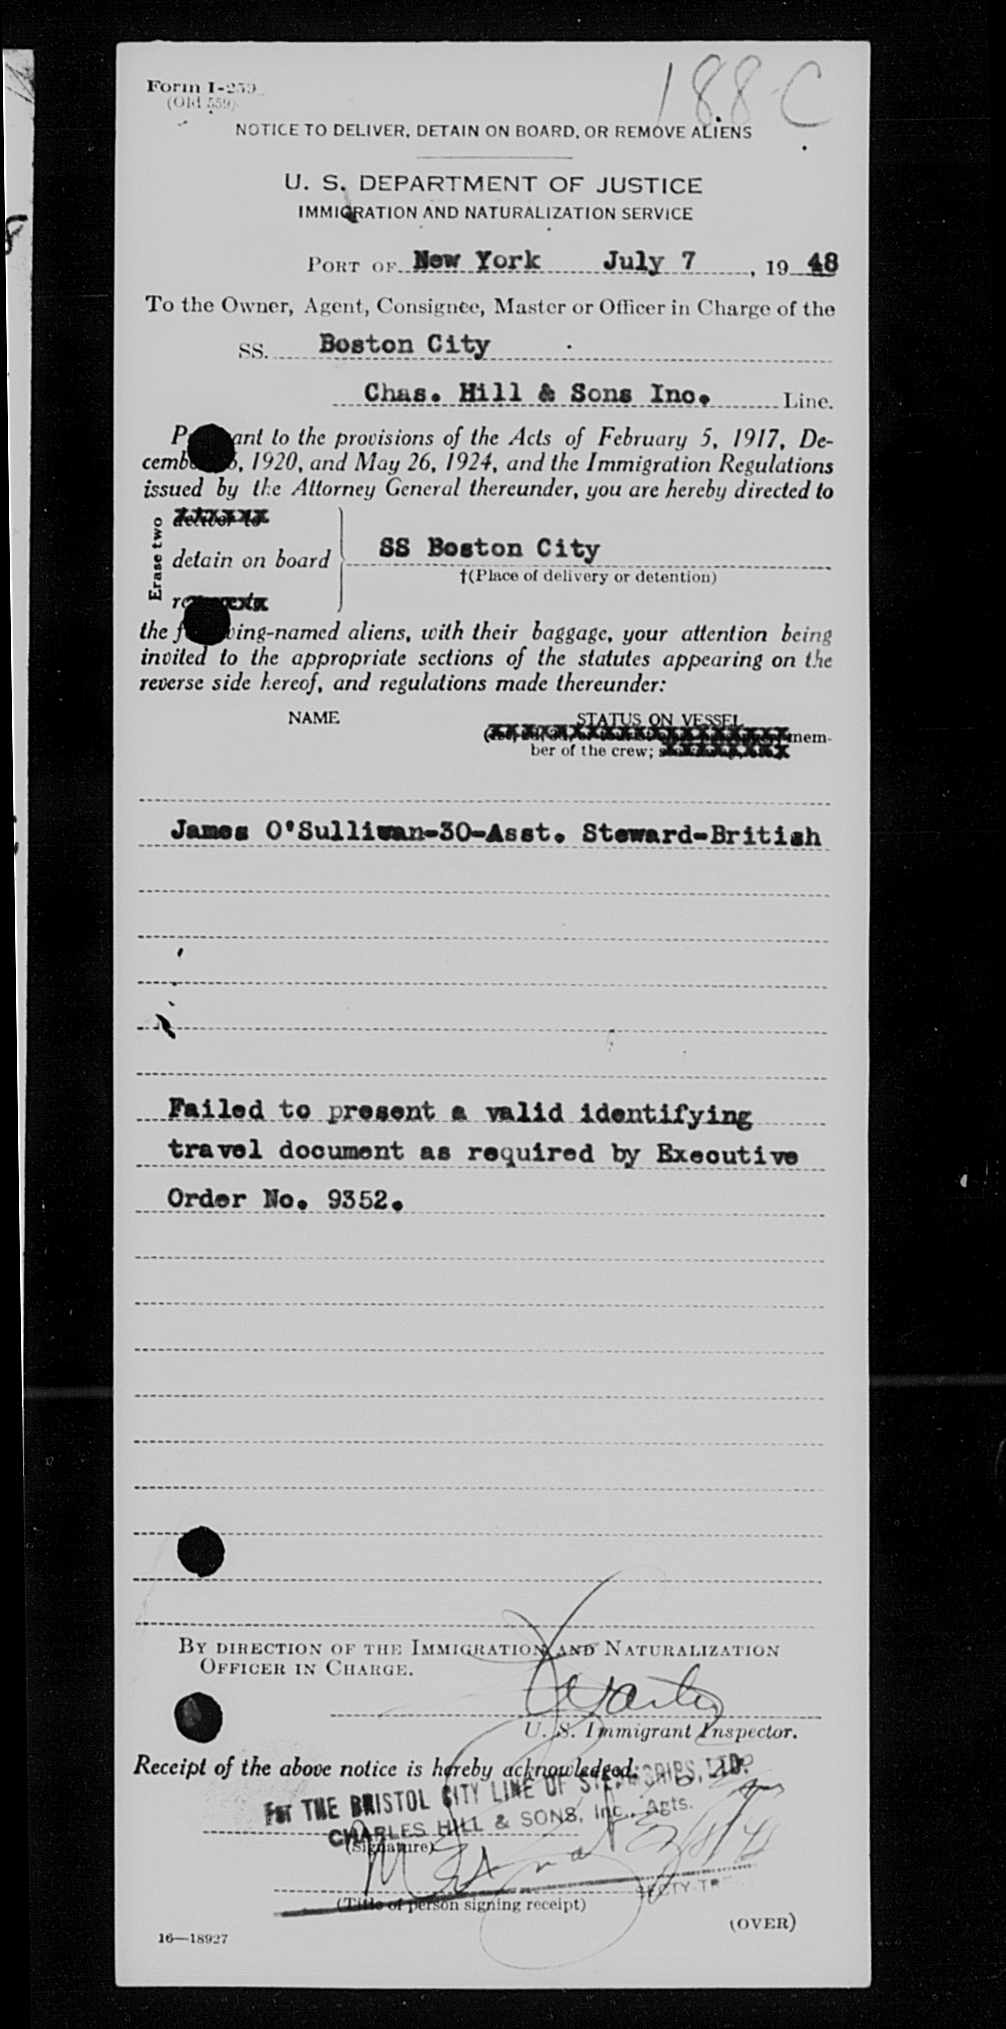 188-C
Form I-259
(Old 559)
NOTICE TO DELIVER, DETAIN ON BOARD, OR REMOVE ALIENS
U. S. DEPARTMENT OF JUSTICE
IMMIGRATION AND NATURALIZATION SERVICE
PORT OF New York July 7, 1948
To the Owner, Agent, Consignee, Master or Officer in Charge of the
SS. Boston City
Chas. Hill & Sons Inc. Line.
P ant to the provisions of the Acts of February 5, 1917, De-
cemb , 1920, and May 26, 1924, and the Immigration Regulations
issued by the Attorney General thereunder, you are hereby directed to
Erase two
deliver to
detain on board SS Boston City
†(Place of delivery or detention)
the f ving-named aliens, with their baggage, your attention being
invited to the appropriate sections of the statutes appearing on the
reverse side hereof, and regulations made thereunder:
NAME STATUS ON VESSEL
mem-
ber of the crew;
James O'Sullivan-30-Asst. Steward-British
Failed to present a valid identifying
travel document as required by Executive
Order No. 9352.
BY DIRECTION OF THE IMMIGRATION AND NATURALIZATION
OFFICER IN CHARGE.
U. S. Immigrant Inspector.
Receipt of the above notice is hereby acknowledged:
For THE BRISTOL CITY LINE OF STEAMSHIPS, LTD.
CHARLES HILL & SONS, Inc., Agts.
(Signature)
(Title of person signing receipt)
(OVER)
16—18927